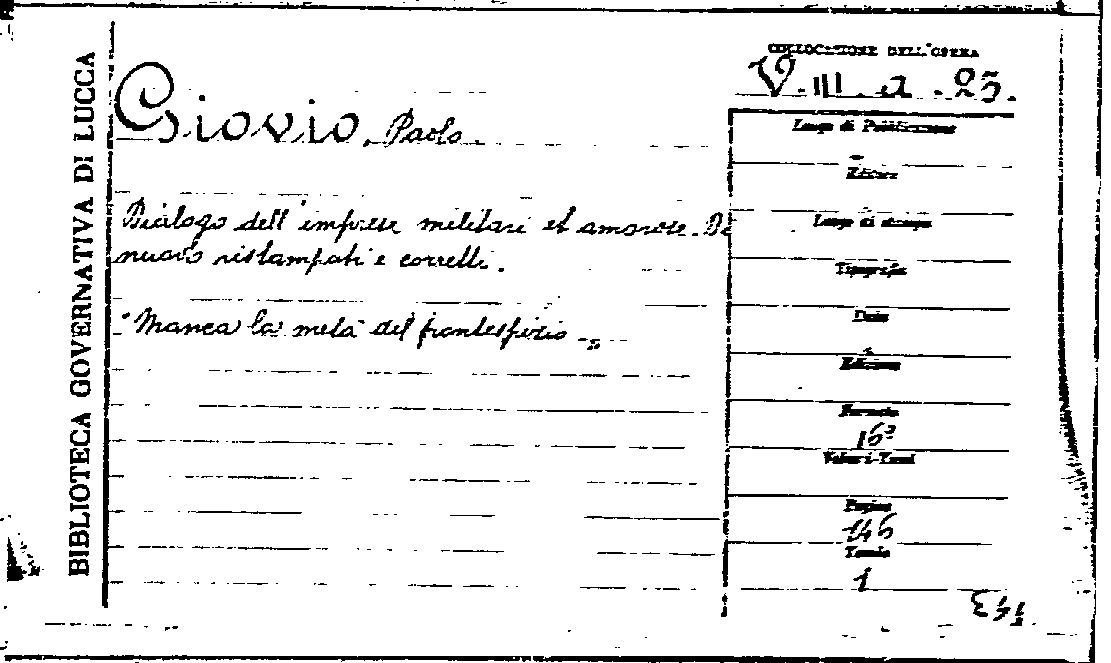 BIBLIOTECA GOVERNATIVA DI LUCCA
COLLOCAZIONE DELL'OPERA
V. III. a. 23.
Giovio, Paolo.
Dialogo dell'imprese militari et amorose. Di
nuovo ristampati e corretti.
"Manca la metà del frontespizio."
Luogo di Pubblicazione
Editore
Luogo di stampa
Tipografia
Data
Edizione
Formato
16º
Volumi-Tomi
Pagine
146
Tavole
1